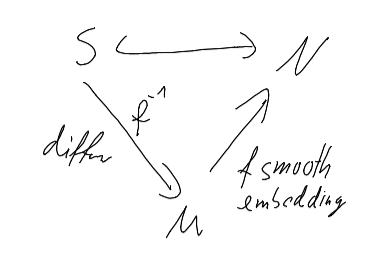 S N
f⁻¹
diffeo
f smooth
embedding
M